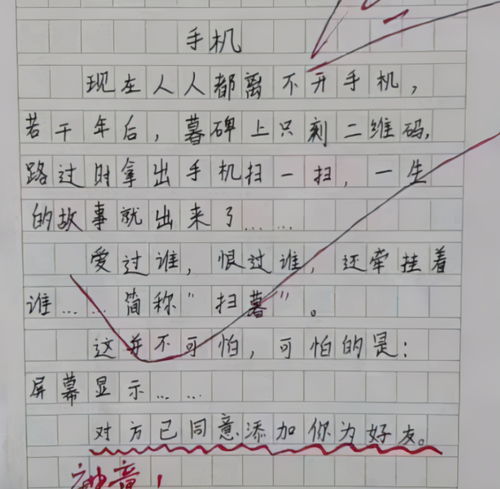 手机
现在人人都离不开手机，
若干年后，暮碑上只刻二维码，
路过时拿出手机扫一扫，一生
的故事就出来了……
爱过谁，恨过谁，还牵挂着
谁……简称"扫暮"。
这并不可怕，可怕的是：
屏幕显示……
对方已同意添加你为好友。